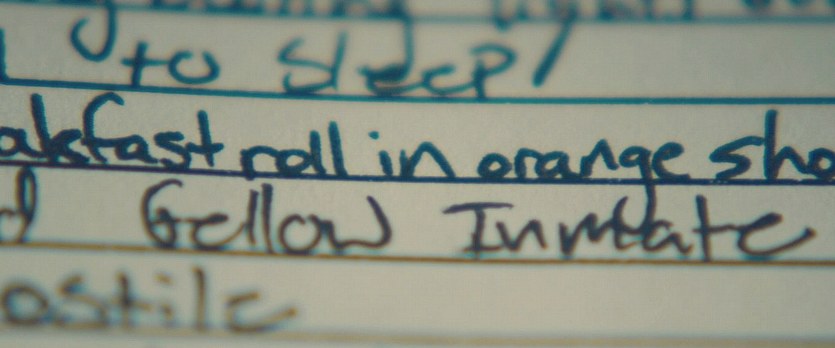 to sleep!
akfast roll in orange sho
d Gellow Inmate
ostile